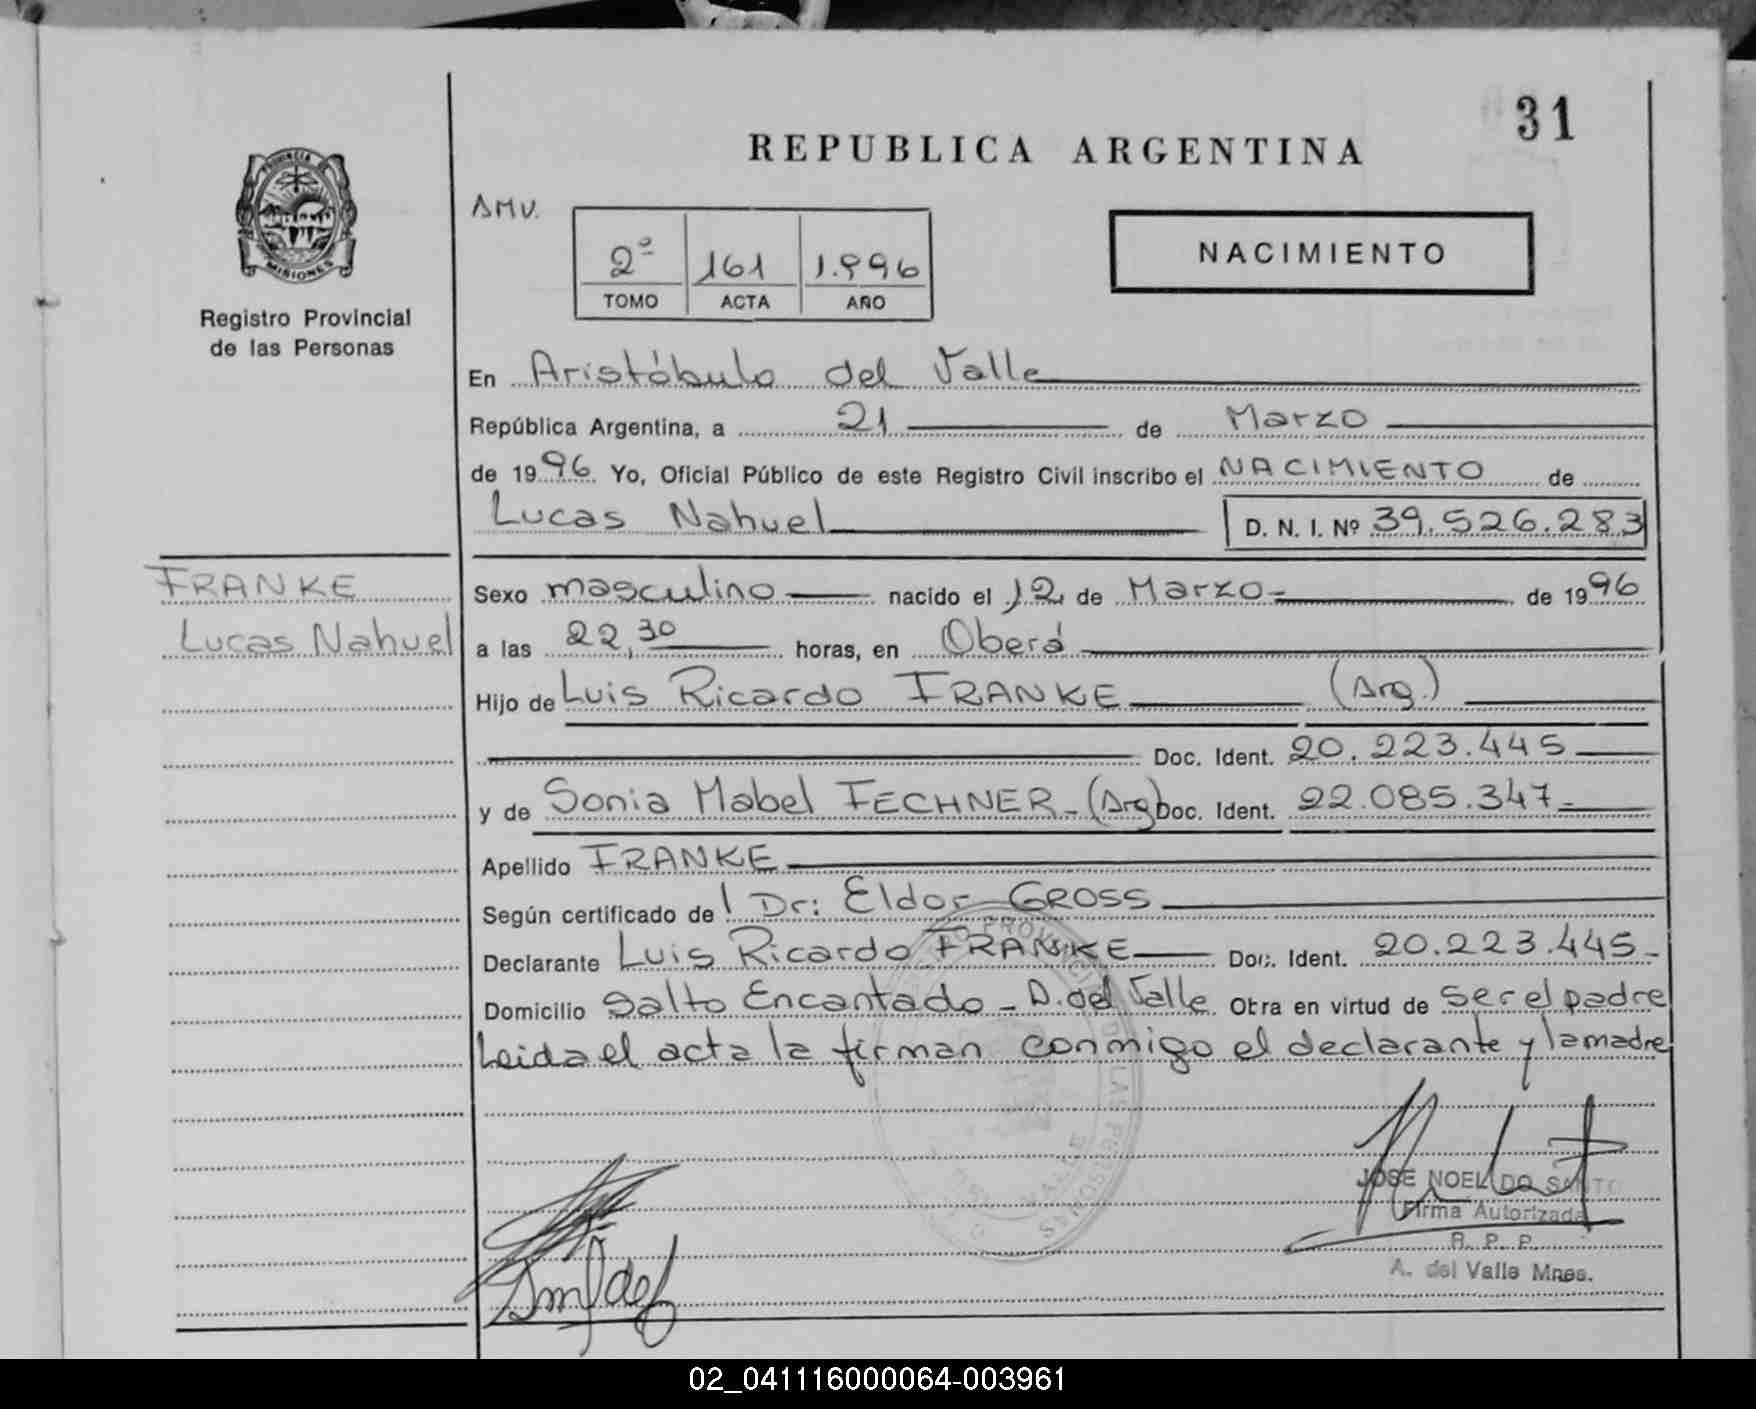 31
REPUBLICA ARGENTINA
PROVINCIA DE
MISIONES
Registro Provincial
de las Personas
AMV.
2º 161 1.996
TOMO ACTA AÑO
NACIMIENTO
En Aristóbulo del Valle
República Argentina, a 21 de Marzo
de 1996 Yo, Oficial Público de este Registro Civil inscribo el NACIMIENTO de
Lucas Nahuel D. N. I. Nº 39.526.283
FRANKE
Lucas Nahuel
Sexo masculino nacido el 12 de Marzo de 1996
a las 22,30 horas, en Oberá
Hijo de Luis Ricardo FRANKE (Arg.)
Doc. Ident. 20.223.445
y de Sonia Mabel FECHNER - (Arg) Doc. Ident. 22.085.347
Apellido FRANKE
Según certificado de Dr: Eldor GROSS
Declarante Luis Ricardo FRANKE Doc. Ident. 20.223.445
Domicilio Salto Encantado - A. del Valle Obra en virtud de ser el padre
Leida el acta la firman conmigo el declarante y la madre
JOSE NOEL DO SANTO
Firma Autorizada
R. P. P.
A. del Valle Mnes.
02_041116000064-003961